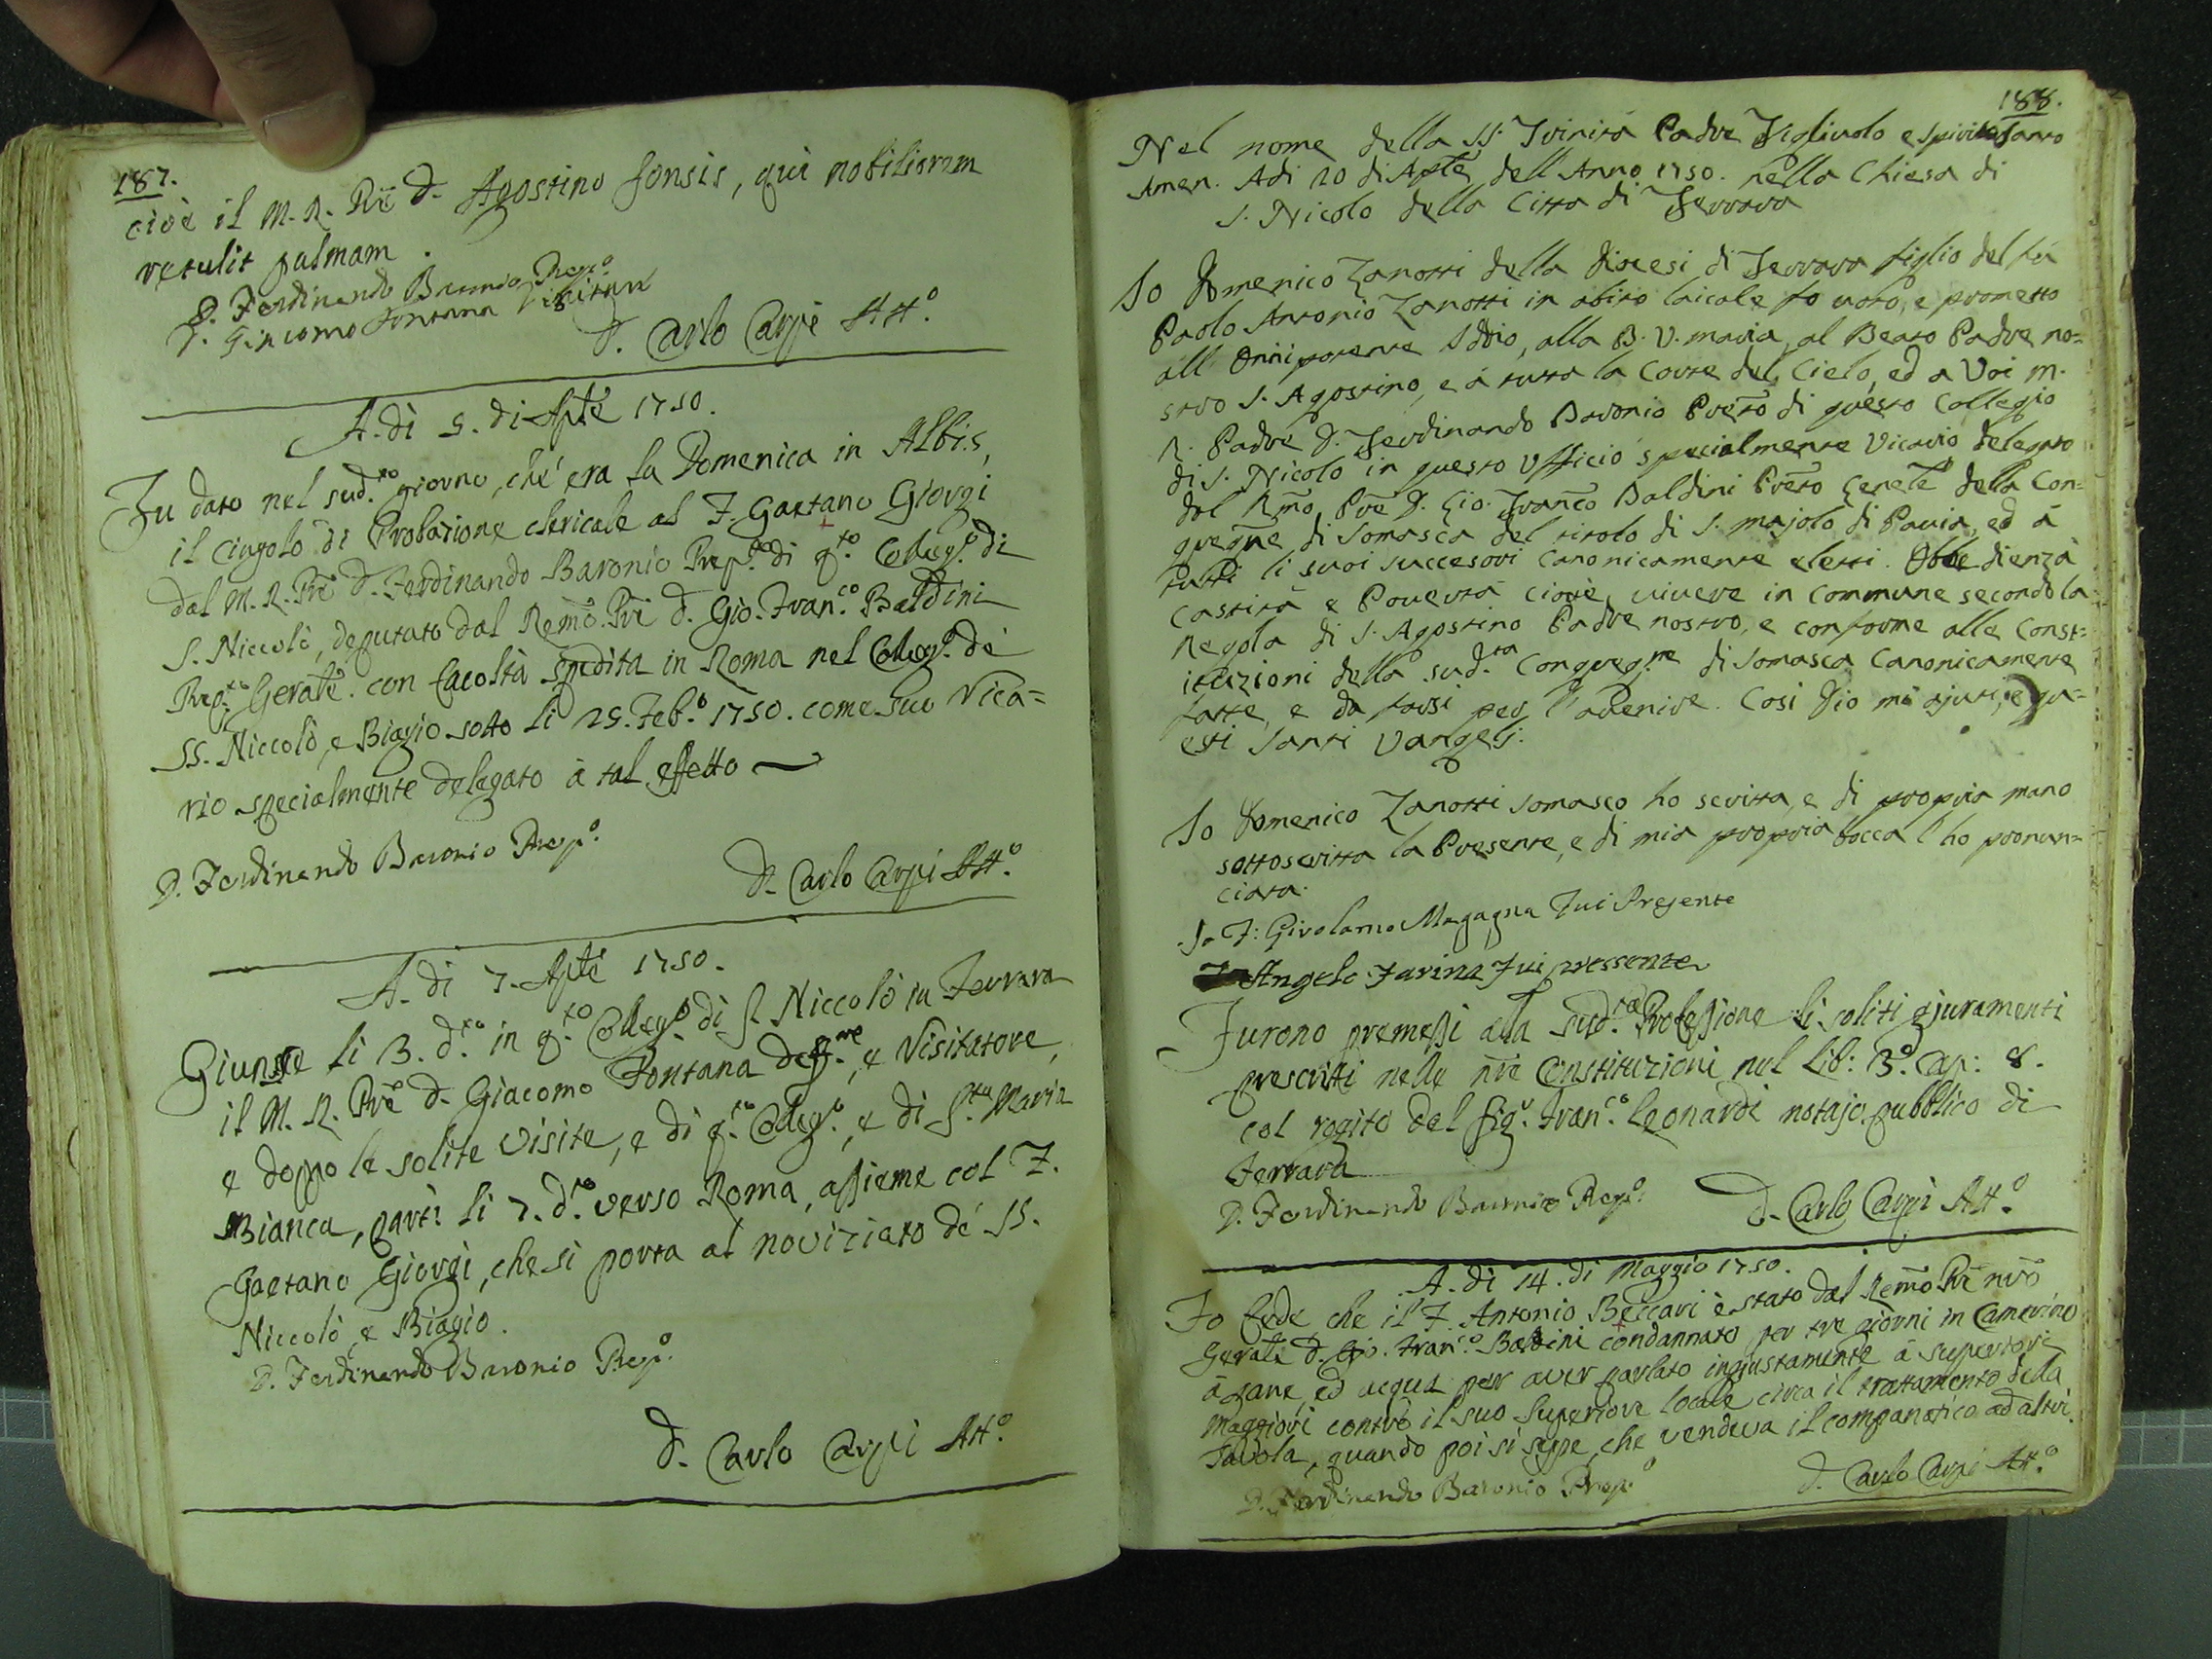 187.
cioè il M. R. Pre D. Agostino Sonsis, qui nobiliorem
retulit palmam.
D. Ferdinando Baronio Prep.o
D. Giacomo Fontana Visitat.
D. Carlo Carpi Att.o
A. dì 5. di Aple 1750.
Fu dato nel sud.to giorno, che era la Domenica in Albis,
il Cingolo di Probazione clericale al F. Gaetano Giorgi
dal M. R. Pre D. Ferdinando Baronio Prep.to di q.to Colleg.o di
S. Niccolò, deputato dal Remo. Pre D. Gio. Fran.co Baldini
Prep.to Gerale. con facoltà spedita in Roma nel Colleg.o de
SS. Niccolò, e Biagio sotto li 25. Feb.o 1750. come suo Vica=
rio specialmente delegato à tal effetto
D. Ferdinando Baronio Prep.o
D. Carlo Carpi Att.o
A. di 7. Aple 1750.
Giunse li 3. d.to in q.to Colleg.o di S. Niccolò in Ferrara
il M. R. Pre D. Giacomo Fontana Deff.re, e Visitatore,
e doppo le solite visite, e di q.to Colleg.o, e di S.ta Maria
Bianca, partì li 7. d.to verso Roma, assieme col F.
Gaetano Giorgi, che si porta al noviziato de SS.
Niccolò, e Biagio.
D. Ferdinando Baronio Prep.o
D. Carlo Carpi Att.o
188.
Nel nome della SS. Trinità Padre Figliuolo e Spirito Santo
Amen. Adi 20 di Aple dell Anno 1750. nella Chiesa di
S. Nicolo della Citta di Ferrara
Io Domenico Zanotti della Diocesi di Ferrara figlio del fù
Paolo Antonio Zanotti in abito laicale fo voto, e prometto
all Onnipotente Iddio, alla B. V. maria, al Beato Padre no=
stro S. Agostino, e à tutta la Corte del Cielo, ed a Voi M.
R. Padre D. Ferdinando Baronio Preto di questo Collegio
di S. Nicolo in questo Ufficio specialmente Vicario delegato
dal Rmo Pre D. Gio. Franco Baldini Preto Gerele della Con=
gregne di Somasca del titolo di S. majolo di Pavia, ed à
tutti li suoi successori canonicamente eletti. Obbedienza
Castità e Povertà cioè, vivere in Commune secondo la
Regola di S. Agostino Padre nostro, e conforme alle Const=
ituzioni della sud.ta Congreg.ne di Somasca Canonicamente
fatte, e da farsi per l'avenire. Cosi Dio mi ajuti, e qu=
esti Santi Vangelj.
Io Domenico Zanotti somasco ho scritta, e di propria mano
sottoscritta la Presente, e di mia propria bocca l'ho pronun=
ciata.
Io F: Girolamo Magagna Fui Presente
Angelo Farina Fui pressente
Furono premessi alla sud.ta Professione li soliti giuramenti
prescritti nelle nre Constituzioni nel Lib: 3.o Cap: 8.
col rogito del Sig.r Fran.co Leonardi notajo pubblico di
Ferrara
D. Ferdinando Baronio Prep.o
D. Carlo Carpi Att.o
A. di 14. di Maggio 1750.
Fo fede che il F. Antonio Beccari è stato dal Remo Pre nro
Gerale D. Gio. Fran.co Baldini condannato per tre giorni in Camerino
à pane, ed acqua per aver parlato ingiustamente à superiori
Maggiori contro il suo Superiore locale circa il trattamento della
Tavola, quando poi si seppe, che vendeva il companatico ad altri.
D. Ferdinando Baronio Prep.o
D. Carlo Carpi Att.o